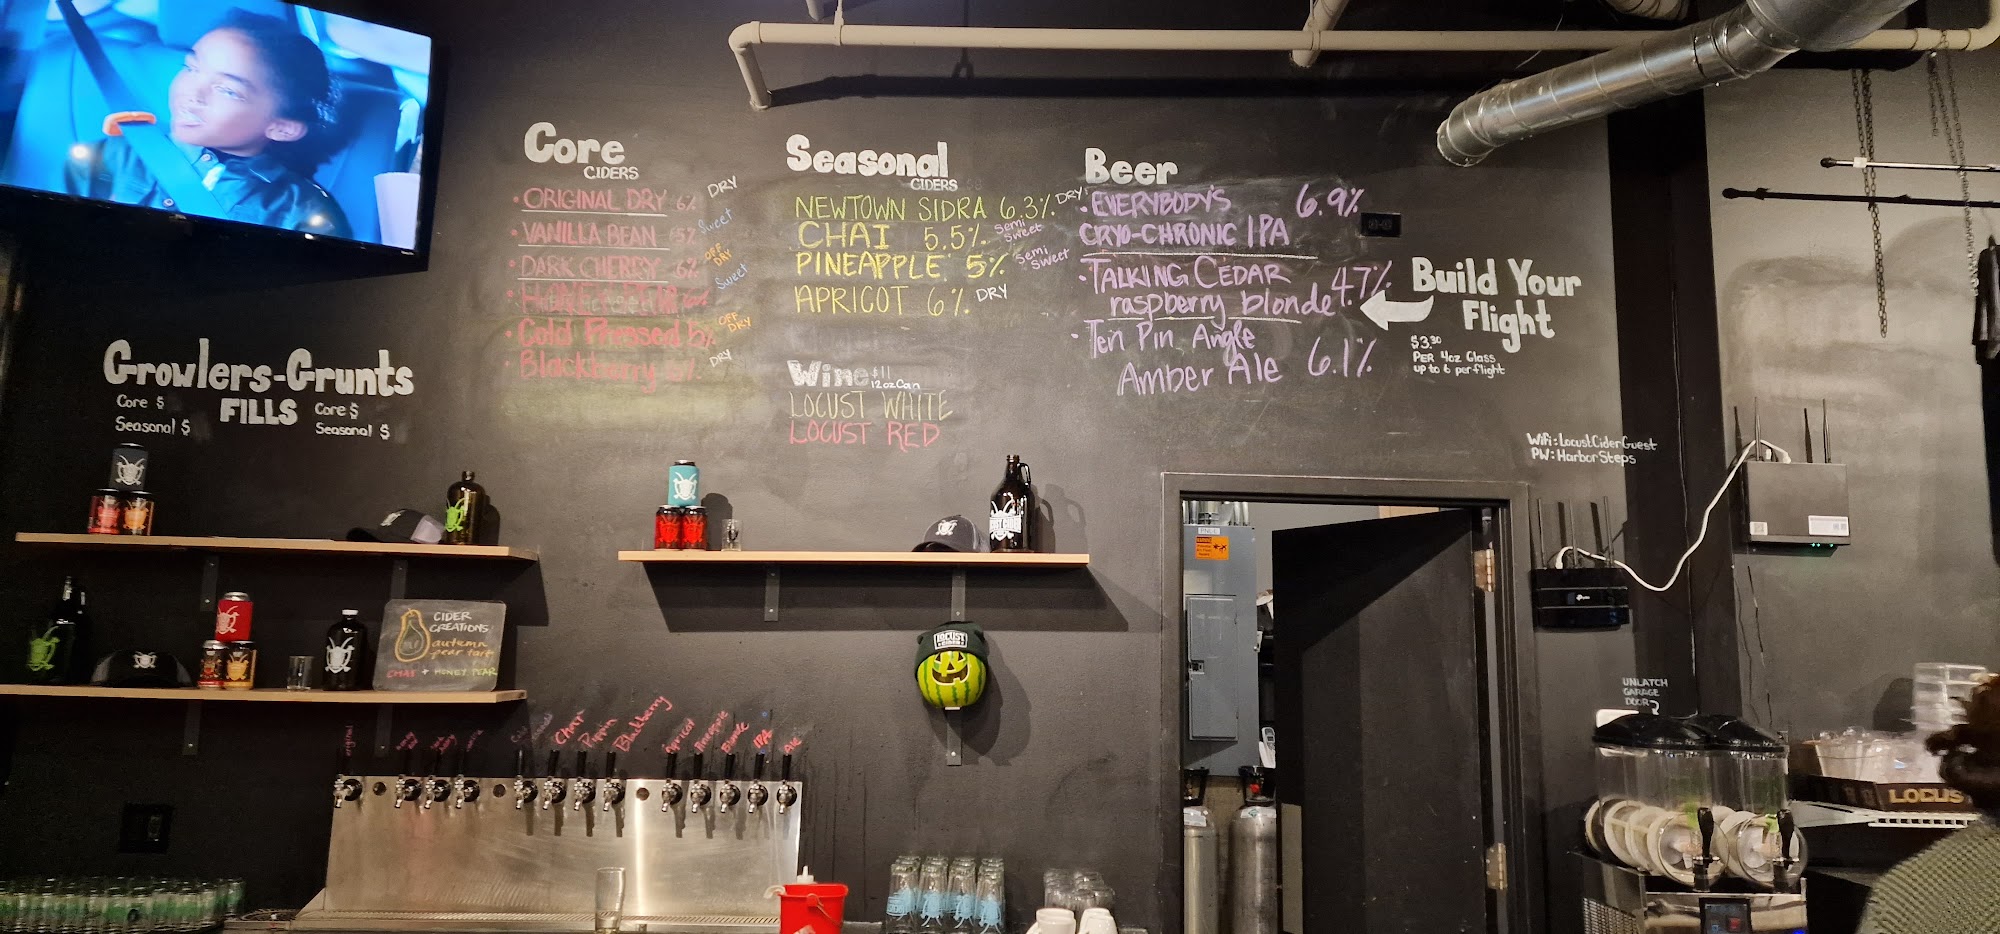 Core
CIDERS
• ORIGINAL DRY 6% DRY
• VANILLA BEAN 5% Sweet
• DARK CHERRY 6% OFF DRY
Sweet
• Cold Pressed 5% OFF DRY
• Blackberry DRY
Seasonal
CIDERS
NEWTOWN SIDRA 6.3% DRY
CHAI 5.5% Semi Sweet
PINEAPPLE 5% Semi Sweet
APRICOT 6% DRY
Wine $11
12oz Can
LOCUST WHITE
LOCUST RED
Beer
• EVERYBODY'S 6.9%
CRYO-CHRONIC IPA
• TALKING CEDAR 4.7%
raspberry blonde
• Ten Pin Angle
Amber Ale 6.1%
Build Your
Flight
$3.30
PER 4oz Glass
up to 6 per flight
Growlers-Grunts
FILLS
Core $
Seasonal $
Core $
Seasonal $
Wifi: LocustCiderGuest
PW: HarborSteps
CIDER
CREATIONS!
autumn
pear tart
CHAI + HONEY PEAR
LOCUST
CIDER
UNLATCH
GARAGE
DOOR
original
Chai
Pippin
Blackberry
Apricot
Pineapple
Blonde
IPA
Ale
LOCUS